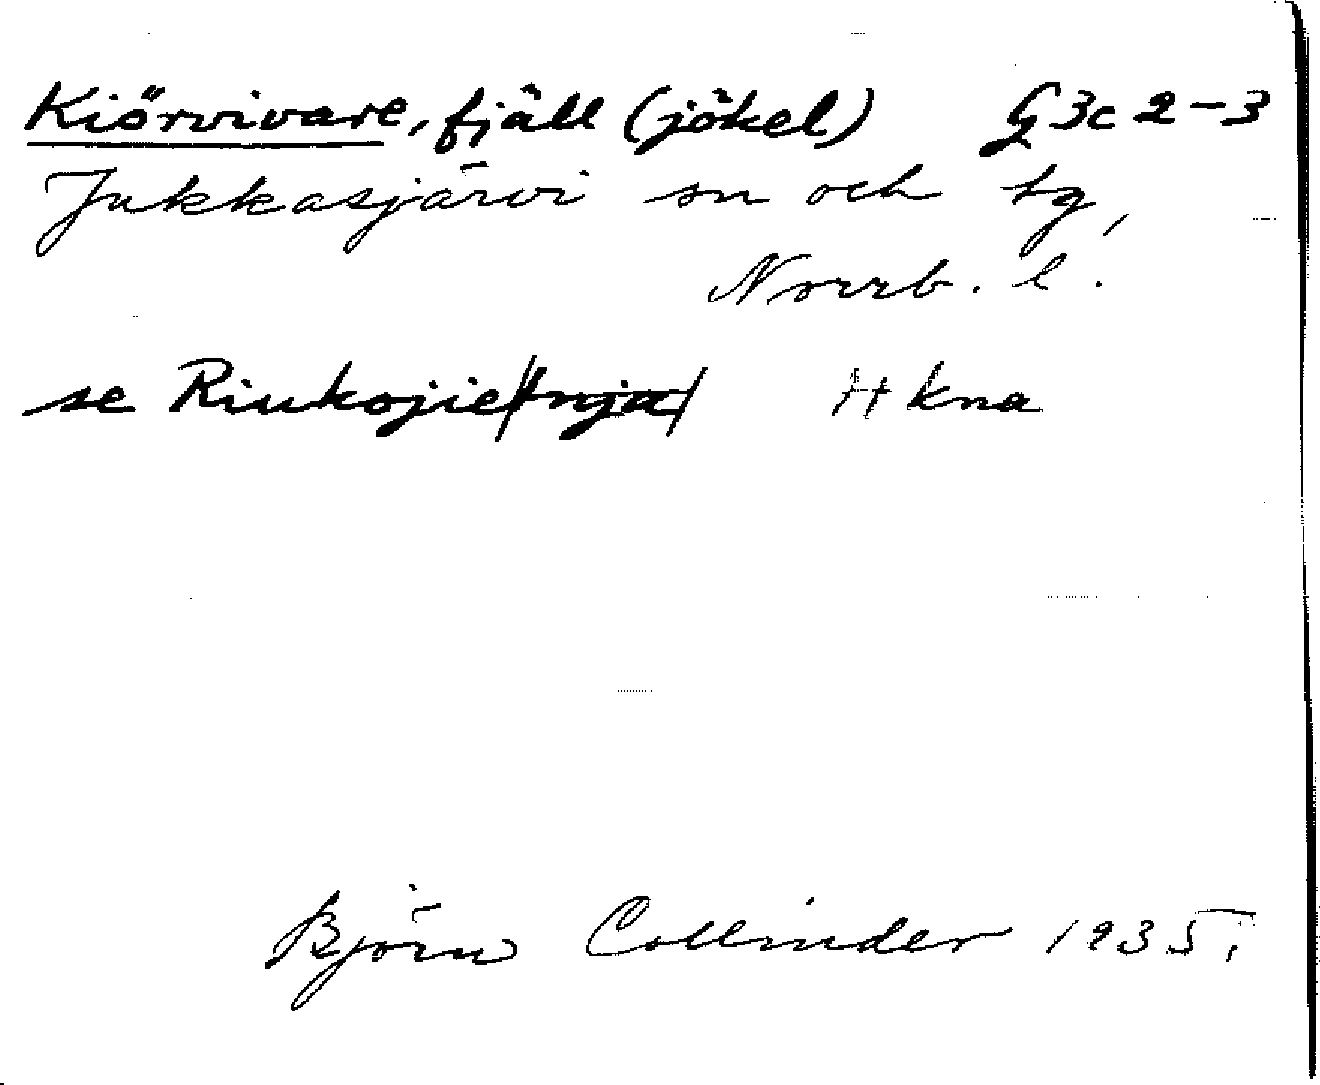 Kiörvivare, fjäll (jökel) G 3c 2-3
Jukkasjärvi sn och tg,
Norrb. l.
se Riukojietnja Hkna
Björn Collinder 1935.